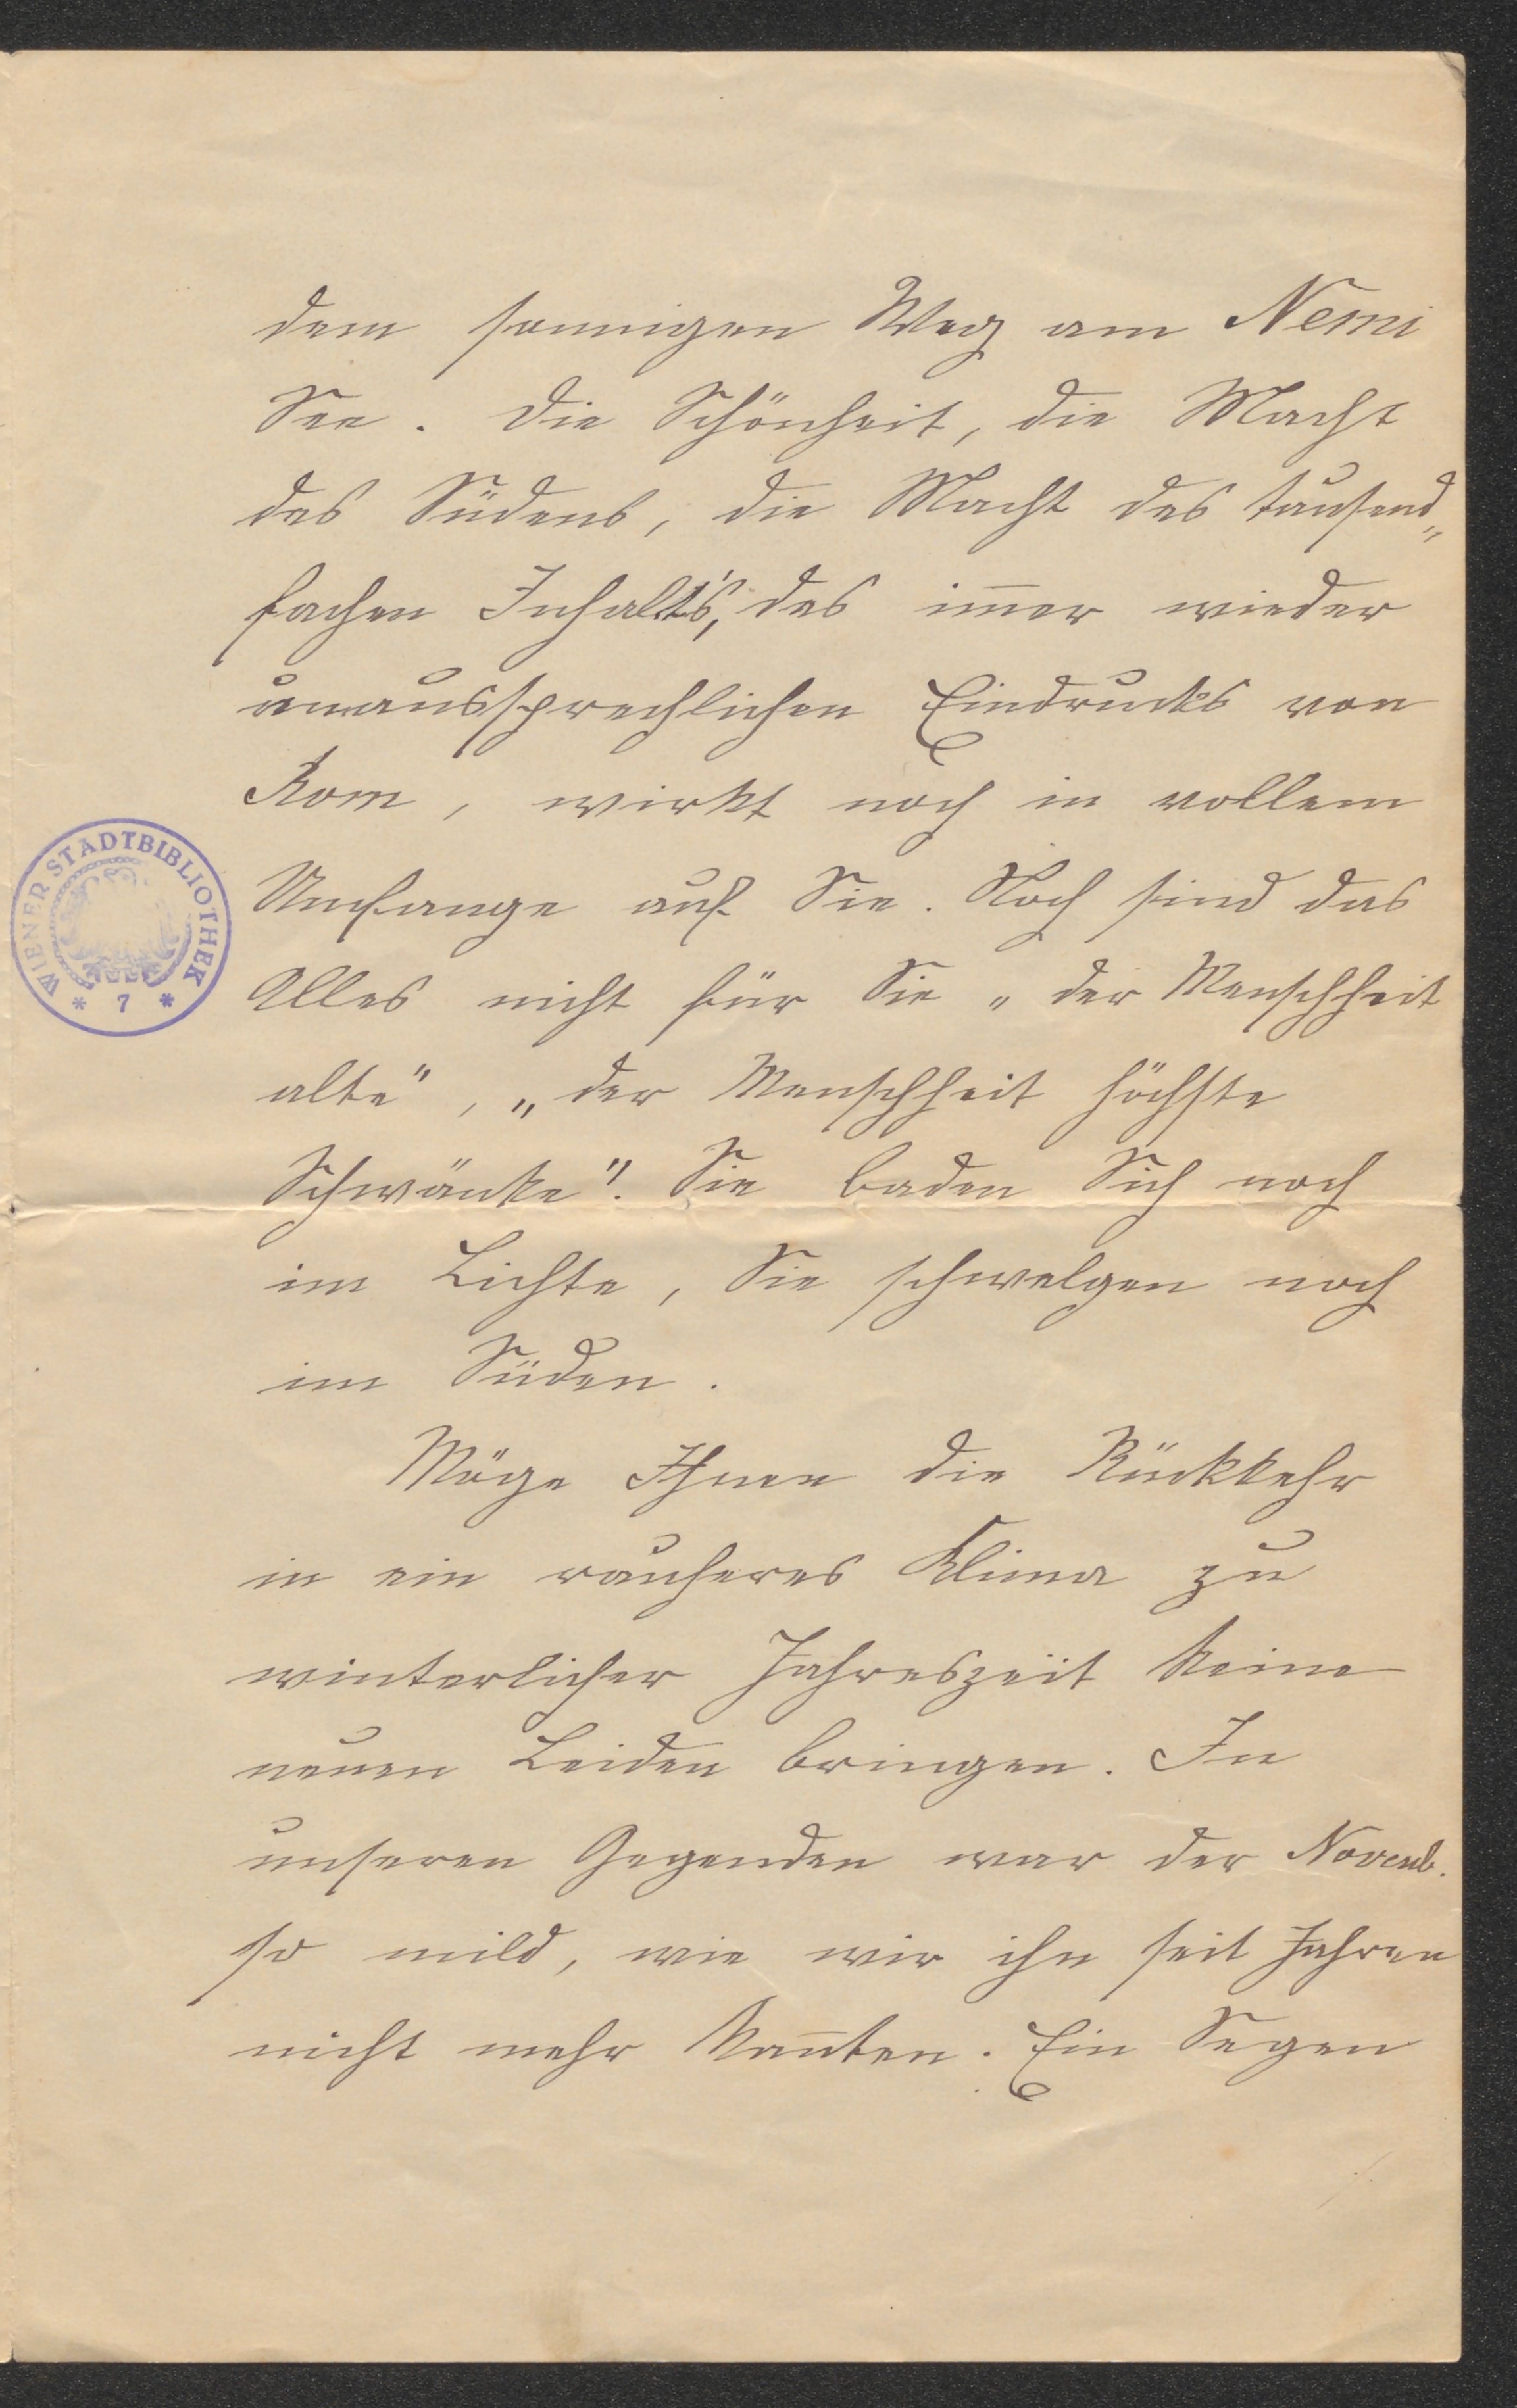 dem sonnigen Weg am Nemi
See. Die Schönheit, die Macht
des Südens, die Macht des tausend„
fachen Inhalts, des im̄er wieder
unaussprechlichen Eindrucks von
Rom, wirkt noch in vollem
Umfange auf Sie. Noch sind das
Alles nicht für Sie „der Menschheit
alte", „der Menschheit höchste
Schwänke". Sie baden Sich noch
im Lichte, Sie schwelgen noch
im Süden.
Möge Ihnen die Rückkehr
in ein rauheres Klima zu
winterlicher Jahreszeit keine
neuen Leiden bringen. In
unseren Gegenden war der Novemb.
so mild, wie wir ihn seit Jahren
nicht mehr kan̄ten. Ein Segen
WIENER STADTBIBLIOTHEK
* 7 *